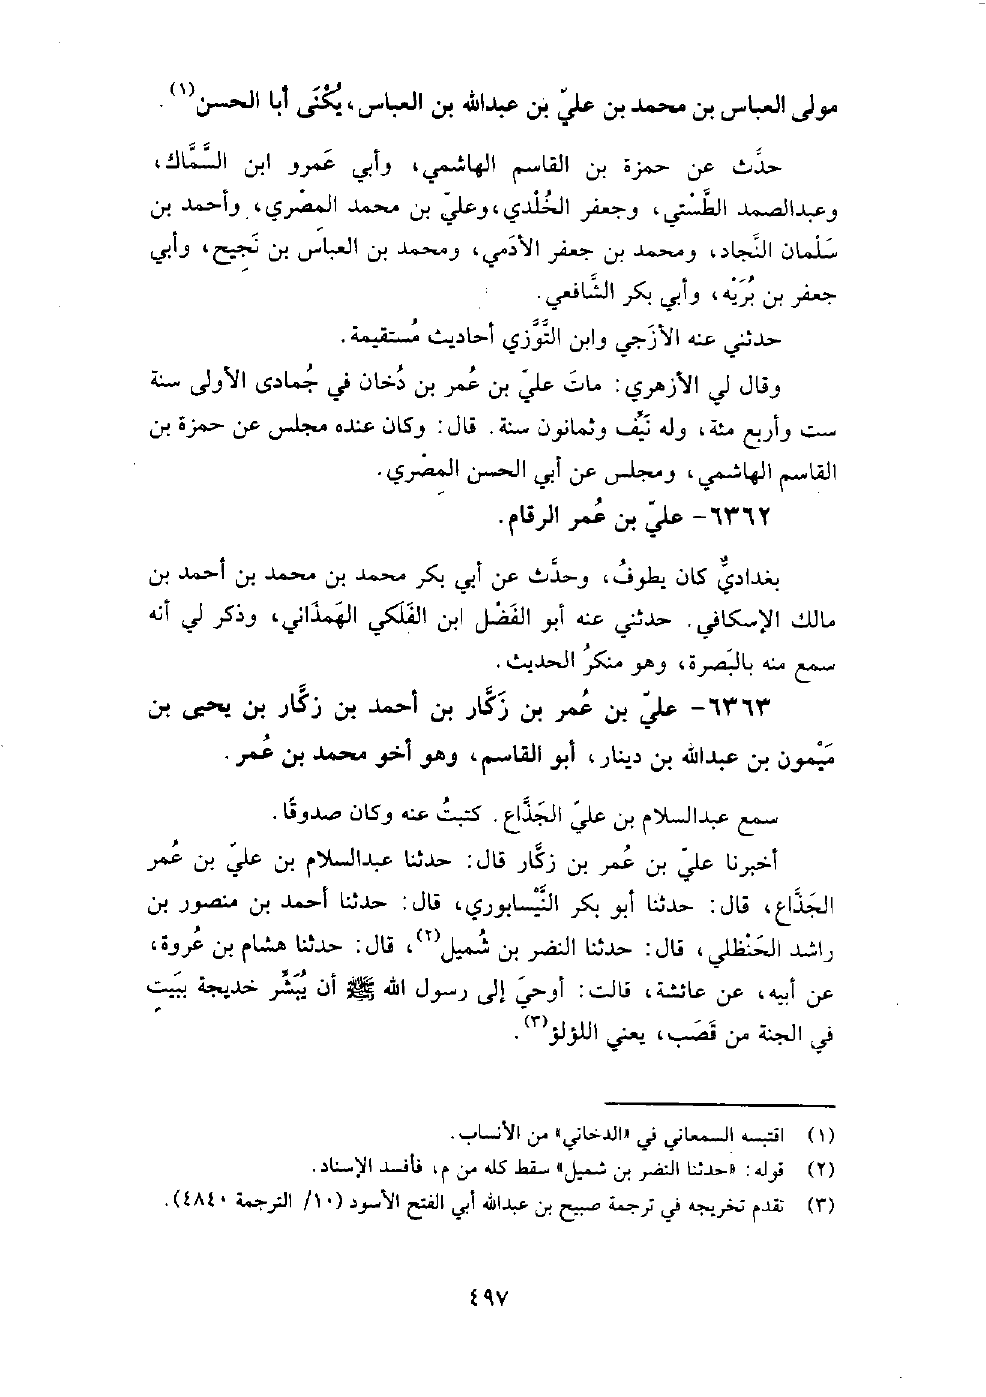 مولى العباس بن محمد بن عليّ بن عبدالله بن العباس، يُكْنَى أبا الحسن(١).
حدَّث عن حمزة بن القاسم الهاشمي، وأبي عَمرو ابن السَّمَّاك،
وعبدالصمد الطَّسْتي، وجعفر الخُلْدي، وعليّ بن محمد المِصْري، وأحمد بن
سَلْمان النَّجاد، ومحمد بن جعفر الأدَمي، ومحمد بن العباس بن نَجِيح، وأبي
جعفر بن بُرَيْه، وأبي بكر الشَّافعي.
حدثني عنه الأزَجي وابن التَّوَّزي أحاديث مُستقيمة.
وقال لي الأزهري: ماتَ عليّ بن عُمر بن دُخان في جُمادى الأولى سنة
ست وأربع مئة، وله نَيِّف وثمانون سنة. قال: وكان عنده مجلس عن حمزة بن
القاسم الهاشمي، ومجلس عن أبي الحسن المِصْري.
٦٣٦٢- عليّ بن عُمر الرقام.
بغداديٌّ كان يطوفُ، وحدَّث عن أبي بكر محمد بن محمد بن أحمد بن
مالك الإسكافي. حدثني عنه أبو الفَضْل ابن الفَلَكي الهَمَذاني، وذكر لي أنه
سمع منه بالبَصرة، وهو منكرُ الحديث.
٦٣٦٣- عليّ بن عُمر بن زَكَّار بن أحمد بن زكَّار بن يحيى بن
مَيْمون بن عبدالله بن دينار، أبو القاسم، وهو أخو محمد بن عُمر.
سمع عبدالسلام بن عليّ الجَذَّاع. كتبتُ عنه وكان صدوقًا.
أخبرنا عليّ بن عُمر بن زكَّار قال: حدثنا عبدالسلام بن عليّ بن عُمر
الجَذَّاع، قال: حدثنا أبو بكر النَّيْسابوري، قال: حدثنا أحمد بن منصور بن
راشد الحَنْظلي، قال: حدثنا النضر بن شُميل(٢)، قال: حدثنا هشام بن عُروة،
عن أبيه، عن عائشة، قالت: أوحيَ إلى رسول الله ﷺ أن يُبَشِّر خديجة ببَيتٍ
في الجنة من قَصَب، يعني اللؤلؤ(٣).
(١) اقتبسه السمعاني في «الدخاني» من الأنساب.
(٢) قوله: «حدثنا النضر بن شميل» سقط كله من م، فأفسد الإسناد.
(٣) تقدم تخريجه في ترجمة صبيح بن عبدالله أبي الفتح الأسود (١٠/ الترجمة ٤٨٤٠).
٤٩٧